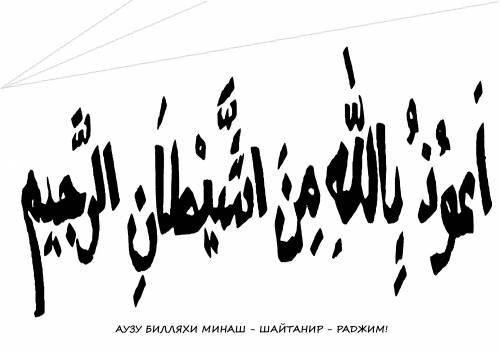 اَعوُذُ بِاللّٰهِ مِنَ اشَّيْطَانِ الرَّجيم
АУЗУ БИЛЛЯХИ МИНАШ - ШАЙТАНИР - РАДЖИМ!